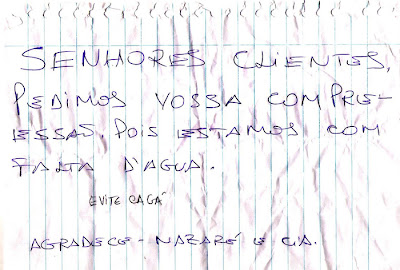 SENHORES CLIENTES,
PEDIMOS VOSSA COMPRE-
ESSAO, POIS ESTAMOS COM
FALTA D'AGUA.
EVITE CAGÁ
AGRADECE - NAZARÉ E CIA.